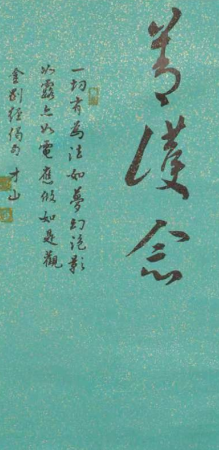 善護念
一切有為法如夢幻泡影
如露亦如電應作如是觀
金剛經偈句 才山